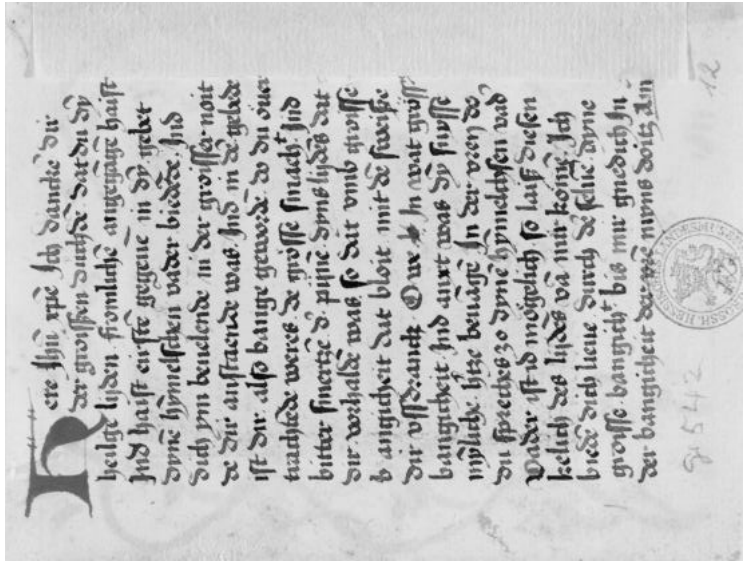 Here Jhu xpe Jch dancke dir
der groissen duchde dat du dy
heilge liden fromliche angegage haist
Jnd haist eirste gegeue in dy gebet
dyne hymelschen vader biedede. Jnd
dich ym beuelende in der groisser noit
de dir anstaende was Jnd in de gebede
ist dir also bange geworde do du ouer
trachtede weres de groisse smacht Jnd
bitter smertze d pijne dyns lidés dat
dir vorhalde was so dat vmb groisse
b angicheit dat bloit mit de sweisse
dir vssdranck O we Jn wat groiss
bangicheit Jnd anxt was dy suysse
mynliche htze beuage Jn der vren do
du spreches zo dyne hymelschen vad
Vader ist id moegelich so lais diesen
kelich des lides va mir kome Jch
biede dich lieue durch de selue dyne
groisse bangich bis mir gnedich Jn
der bangicheit myns doitz Am
GROSSH. HESSISCHES LANDESMUSEUM
Gr 542
12